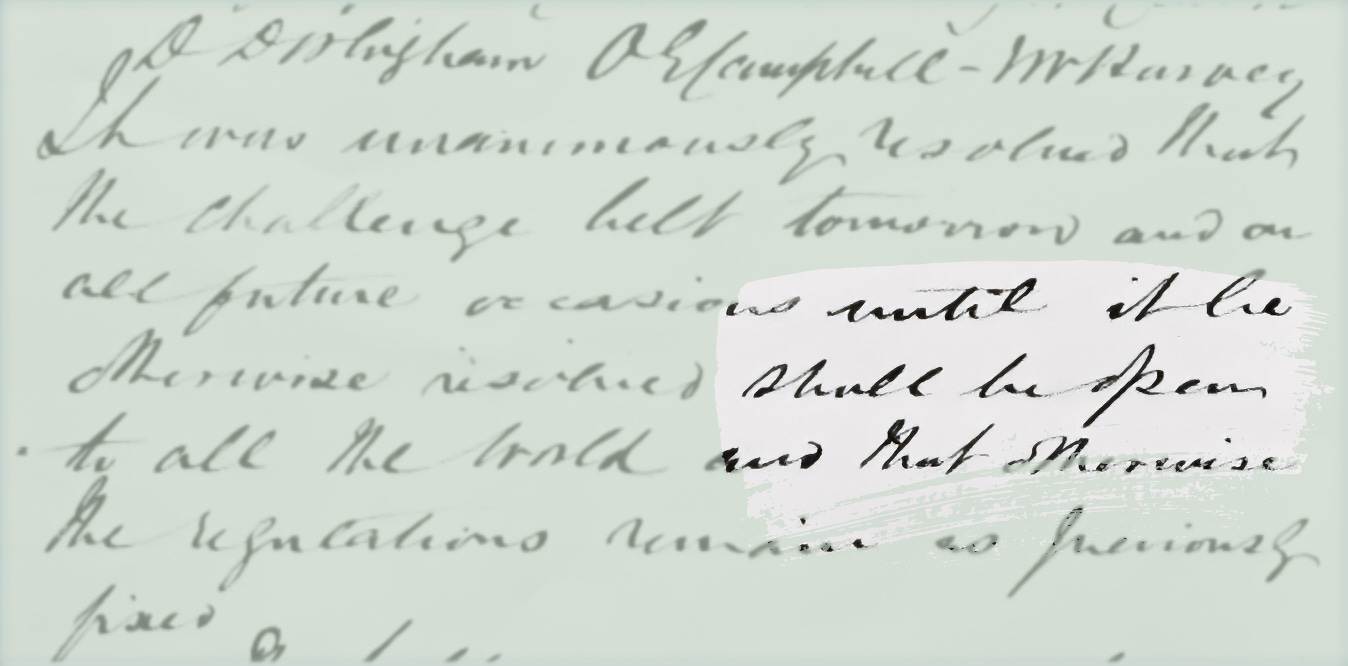 Campbell - McHarvey
It was unanimously resolved that
the challenge belt tomorrow and on
all future occasions until it be
otherwise resolved shall be open
to all the world and that otherwise
the regulations remain as previously
fixed